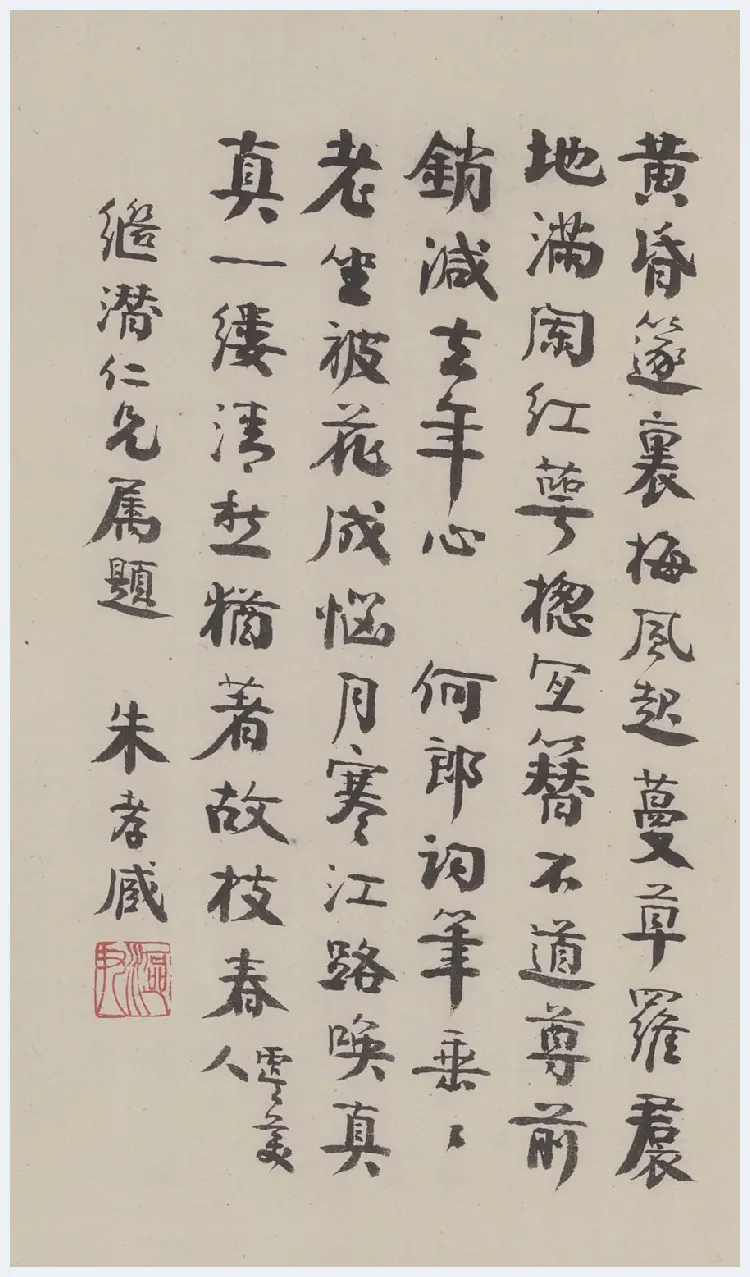 黄昏篴裏梅風起蔓草羅裠
地滿闌紅蕚揔宜簪不道尊前
銷減去年心 何郎詞筆垂〻
老坐被花成惱月寒江路喚真
真一縷清愁猶著故枝春 虞美
人
繼潛仁兄属題 朱孝臧
漚尹